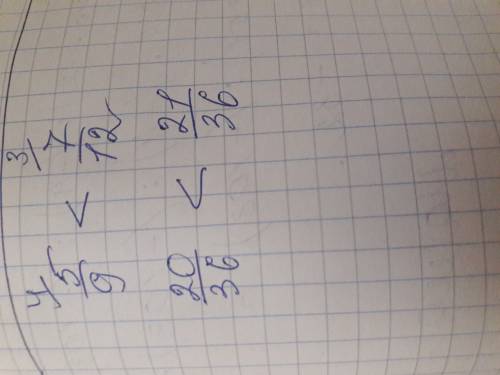 4/ 5/9 < 3/ 7/12
20/36 < 21/36